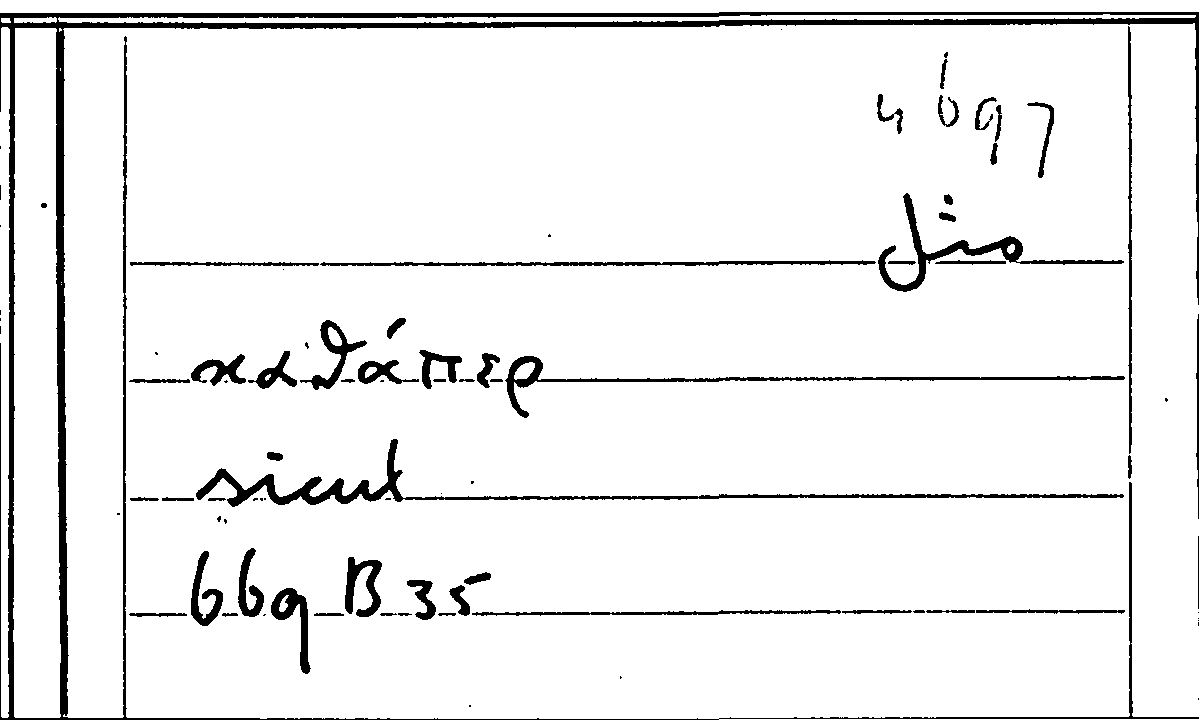 4697
καθάπερ
sicut
669 B 35